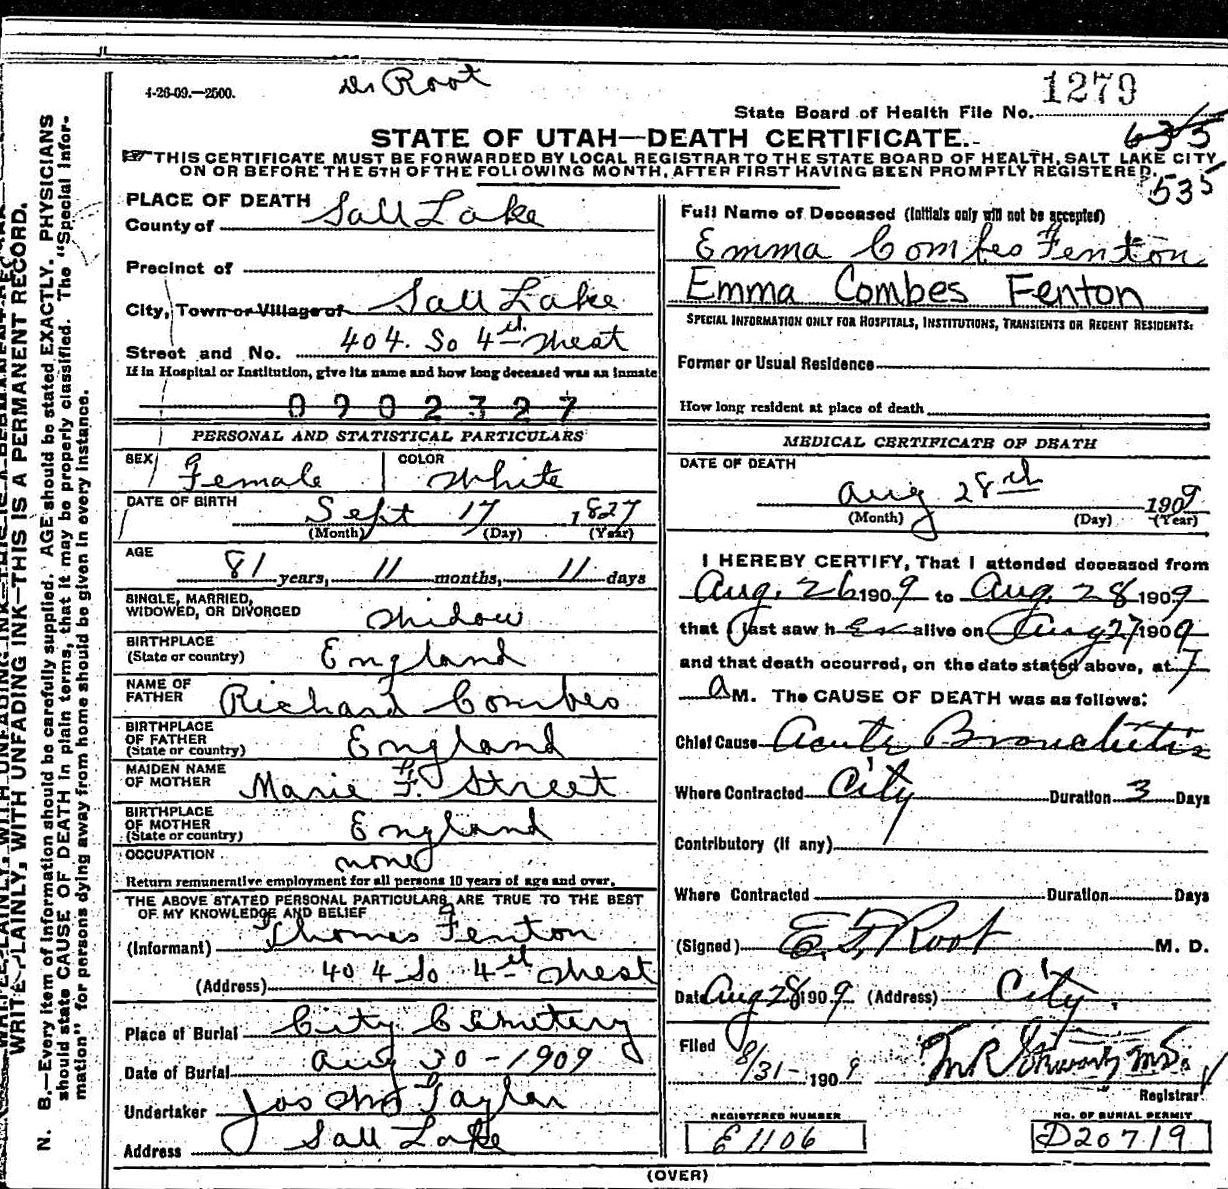 4-26-09.—2500.
Dr Root
1279
State Board of Health File No.
635
STATE OF UTAH—DEATH CERTIFICATE.
535
☞THIS CERTIFICATE MUST BE FORWARDED BY LOCAL REGISTRAR TO THE STATE BOARD OF HEALTH, SALT LAKE CITY,
ON OR BEFORE THE 5TH OF THE FOLLOWING MONTH, AFTER FIRST HAVING BEEN PROMPTLY REGISTERED.
PLACE OF DEATH
County of Salt Lake
Precinct of
City, Town or Village of Salt Lake
Street and No. 404. So 4th West
If in Hospital or Institution, give its name and how long deceased was an inmate
0902327
PERSONAL AND STATISTICAL PARTICULARS
SEX Female COLOR White
DATE OF BIRTH Sept 17 1827
(Month) (Day) (Year)
AGE 81 years, 11 months, 11 days
SINGLE, MARRIED,
WIDOWED, OR DIVORCED Widow
BIRTHPLACE
(State or country) England
NAME OF
FATHER Richard Combes
BIRTHPLACE
OF FATHER
(State or country) England
MAIDEN NAME
OF MOTHER Marie F. Street
BIRTHPLACE
OF MOTHER
(State or country) England
OCCUPATION none
Return remunerative employment for all persons 10 years of age and over.
THE ABOVE STATED PERSONAL PARTICULARS ARE TRUE TO THE BEST
OF MY KNOWLEDGE AND BELIEF
(Informant) Thomas Fenton
(Address) 404 So 4th West
Place of Burial City Cemetery
Date of Burial Aug 30-1909
Undertaker Jos Taylor
Address Salt Lake
Full Name of Deceased (Initials only will not be accepted)
Emma Combes Fenton
Emma Combes Fenton
SPECIAL INFORMATION ONLY FOR HOSPITALS, INSTITUTIONS, TRANSIENTS OR RECENT RESIDENTS:
Former or Usual Residence
How long resident at place of death
MEDICAL CERTIFICATE OF DEATH
DATE OF DEATH
Aug 28th 1909
(Month) (Day) (Year)
I HEREBY CERTIFY, That I attended deceased from
Aug. 26 1909 to Aug. 28 1909
that I last saw her alive on Aug 27 1909
and that death occurred, on the date stated above, at 7
A M. The CAUSE OF DEATH was as follows:
Chief Cause Acute Bronchitis
Where Contracted City Duration 3 Days
Contributory (If any)
Where Contracted Duration Days
(Signed) E. F. Root M. D.
Date Aug 28 1909 (Address) City.
Filed
8/31- 1909
Registrar
REGISTERED NUMBER
E1106
NO. OF BURIAL PERMIT
D20719
(OVER)
WRITE PLAINLY, WITH UNFADING INK—THIS IS A PERMANENT RECORD.
N. B.—Every item of information should be carefully supplied. AGE should be stated EXACTLY. PHYSICIANS
should state CAUSE OF DEATH in plain terms, that it may be properly classified. The "Special Infor-
mation" for persons dying away from home should be given in every instance.